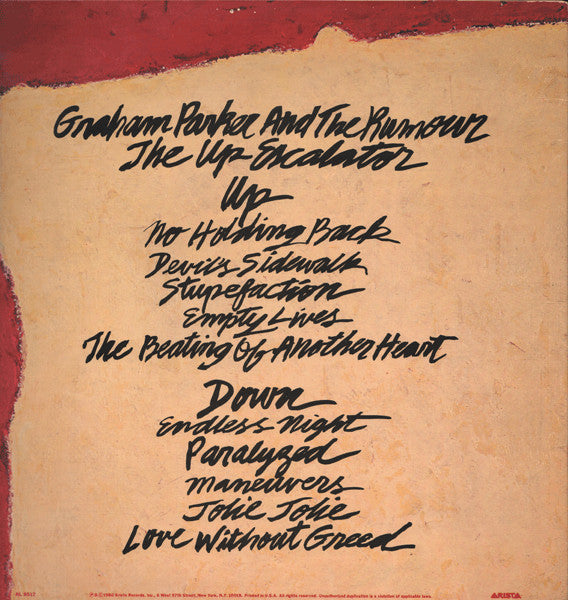 Graham Parker And The Rumour
The Up Escalator
Up
No Holding Back
Devil's Sidewalk
Stupefaction
Empty Lives
The Beating Of Another Heart
Down
Endless Night
Paralyzed
Maneuvers
Jolie Jolie
Love Without Greed
AL 9517
℗ © 1980 Arista Records, Inc., 6 West 57th Street, New York, N.Y. 10019. Printed in U.S.A. All rights reserved. Unauthorized duplication is a violation of applicable laws.
ARISTA